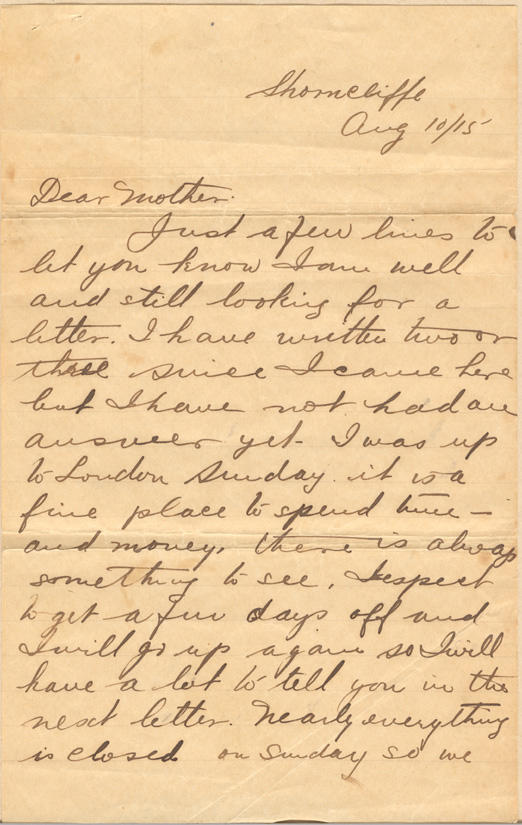 Shorncliffe
Aug 10/15
Dear Mother.
Just a few lines to
let you know I am well
and still looking for a
letter. I have written two or
three since I came here
but I have not had an
answer yet. I was up
to London Sunday. it is a
fine place to spend time –
and money, there is always
something to see. I expect
to get a few days off and
I will go up again so I will
have a lot to tell you in the
next letter. Nearly everything
is closed on Sunday so we